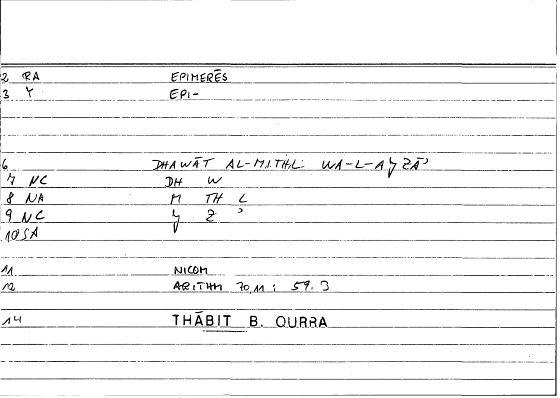 2 RA EPIMERĒS
3 Y EPI-
6 DHAWĀT AL-MITHL WA-L-AǧZĀʾ
7 NC DH W
8 NA M TH L
9 NC ǧ Z ʾ
10 SA
11 NICOM
12 ARITHM 70,11 : 59.3
14 THĀBIT B. QURRA